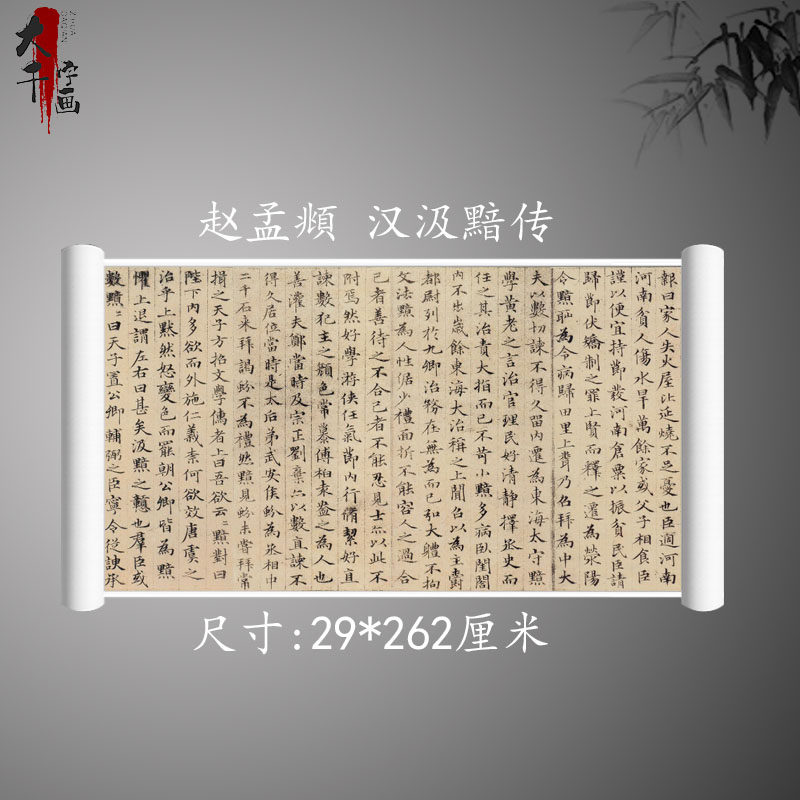 大千字画
赵孟頫 汉汲黯传
報曰家人失火屋比延燒不足憂也臣過河南
河南貧人傷水旱萬餘家或父子相食臣
謹以便宜持節發河南倉粟以振貧民臣請
歸節伏矯制之罪上賢而釋之遷為滎陽
令黯恥為令病歸田里上聞乃召拜為中大
夫以數切諫不得久留內遷為東海太守黯
學黃老之言治官理民好清靜擇丞史而
任之其治責大指而已不苛小黯多病臥閨閤
內不出歲餘東海大治稱之上聞召以為主爵
都尉列於九卿治務在無為而已弘大體不拘
文法黯為人性倨少禮面折不能容人之過合
己者善待之不合己者不能忍見士亦以此不
附焉然好學游俠任氣節內行脩絜好直
諫數犯主之顏色常慕傅柏袁盎之為人也
善灌夫鄭當時及宗正劉棄亦以數直諫不
得久居位當時是太后弟武安侯蚡為丞相中
二千石來拜謁蚡不為禮然黯見蚡未嘗拜常
揖之天子方招文學儒者上曰吾欲云〻黯對曰
陛下內多欲而外施仁義柰何欲效唐虞之
治乎上默然怒變色而罷朝公卿皆為黯
懼上退謂左右曰甚矣汲黯之戇也羣臣或
數黯〻曰天子置公卿輔弼之臣寧令從諛承
尺寸:29*262厘米